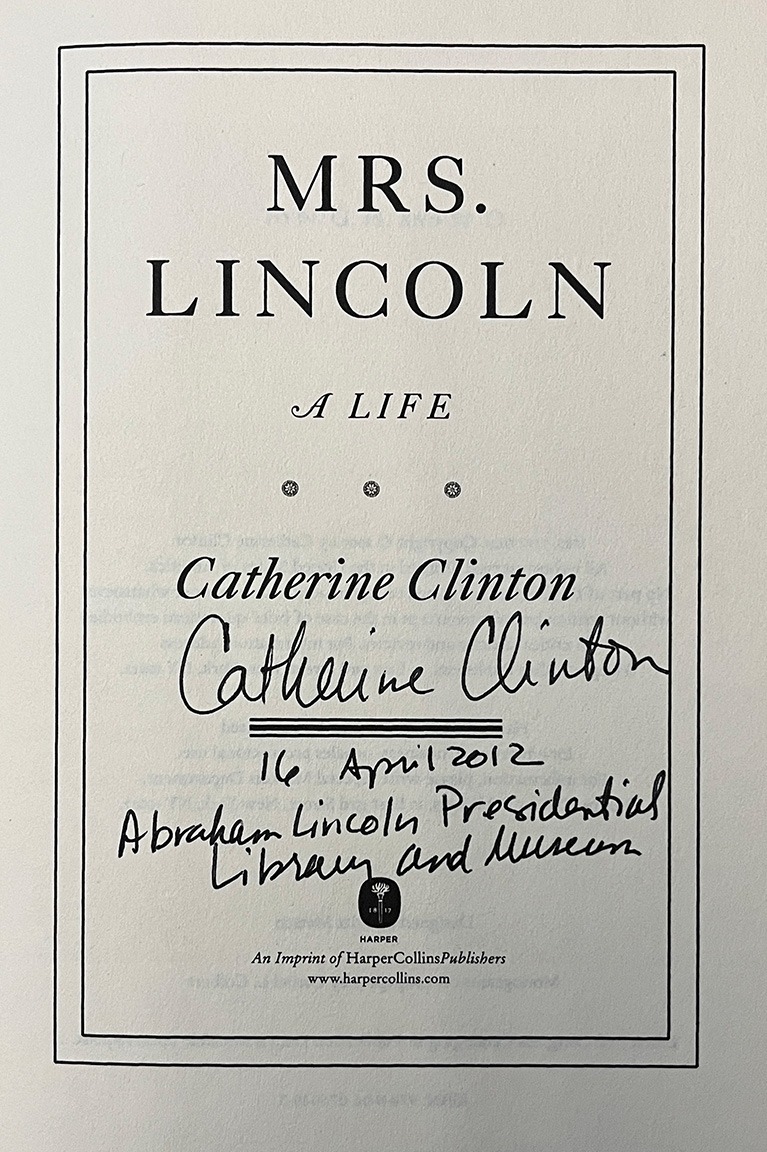 MRS.
LINCOLN
A LIFE
Catherine Clinton
Catherine Clinton
16 April 2012
Abraham Lincoln Presidential
Library and Museum
18 17
HARPER
An Imprint of HarperCollinsPublishers
www.harpercollins.com